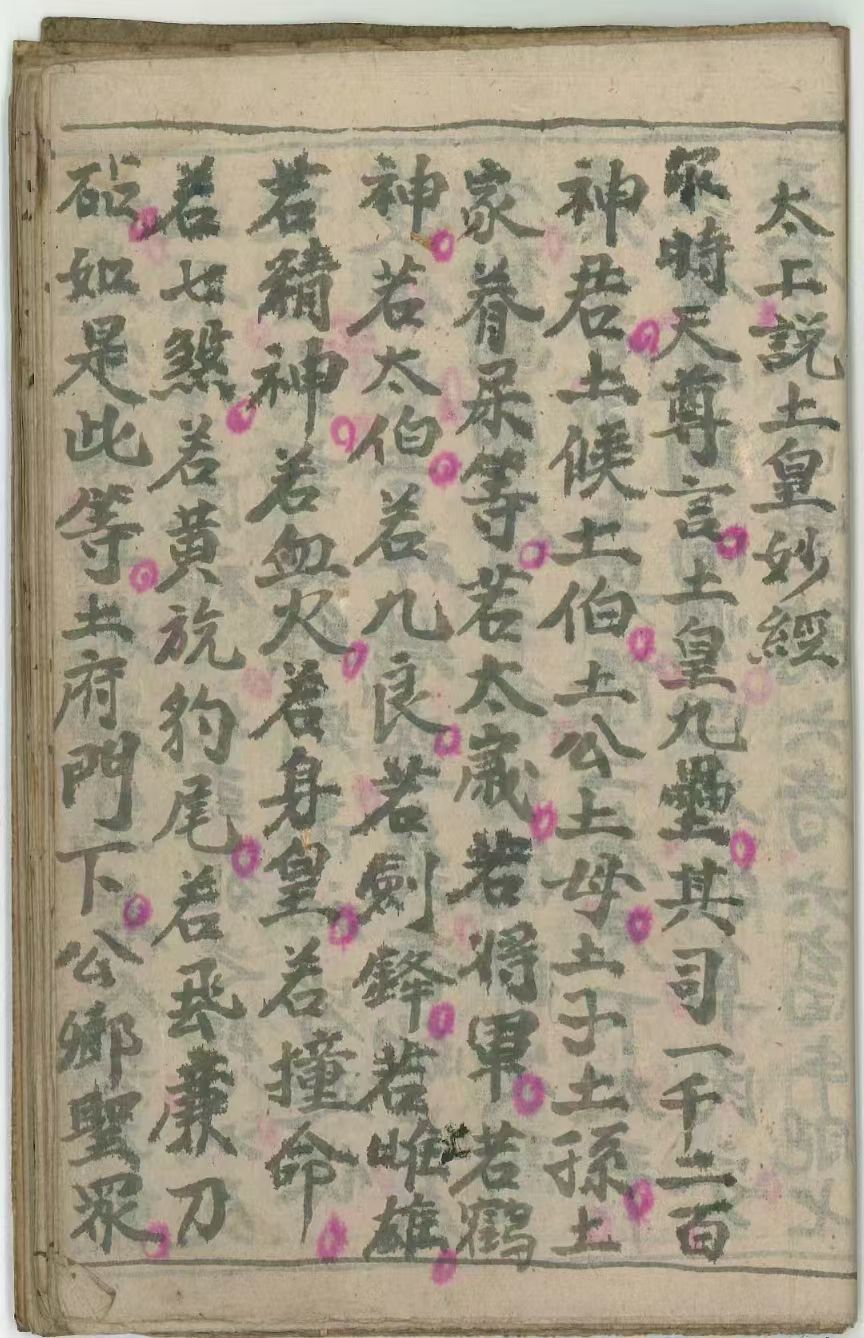 太上説土皇妙經
尒時天尊言土皇九壘其司一千二百
神君土候土伯土公土母土子土孫土
家眷属等若太歲若將軍若鶴
神若太伯若九良若劍鋒若雌雄
若精神若血火若身皇若撞命
若七煞若黄旄豹尾若飛廉刀
砧如是此等土府門下公卿聖眾